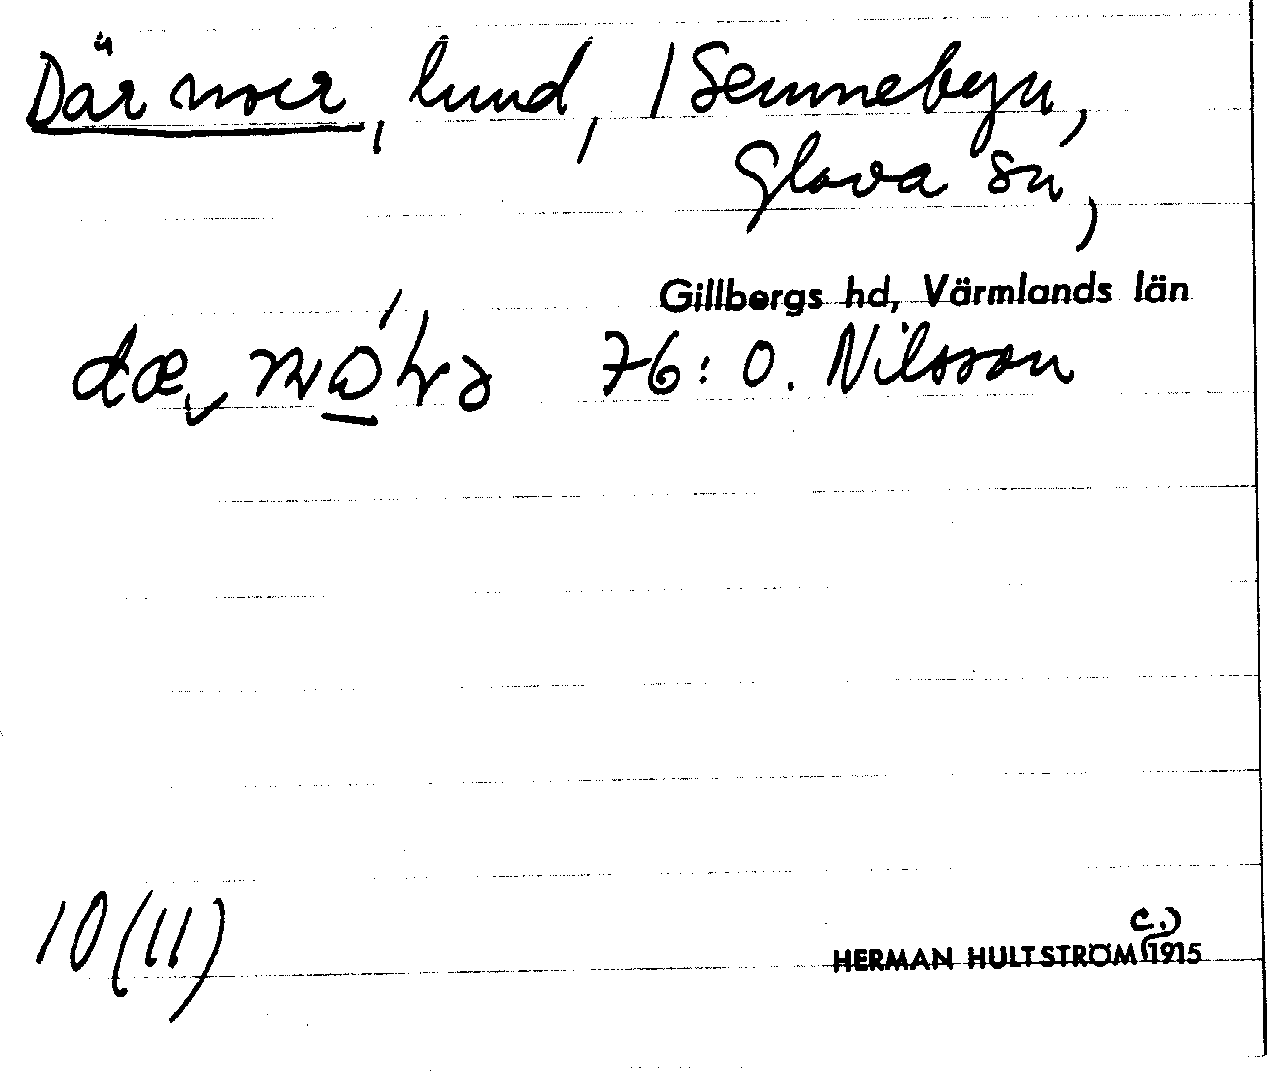 Där norr, lund, 1 Sennebyn,
Glava sn,
Gillbergs hd, Värmlands län
76: O. Nilsson
10 (11)
c.)
HERMAN HULTSTRÖM (1915